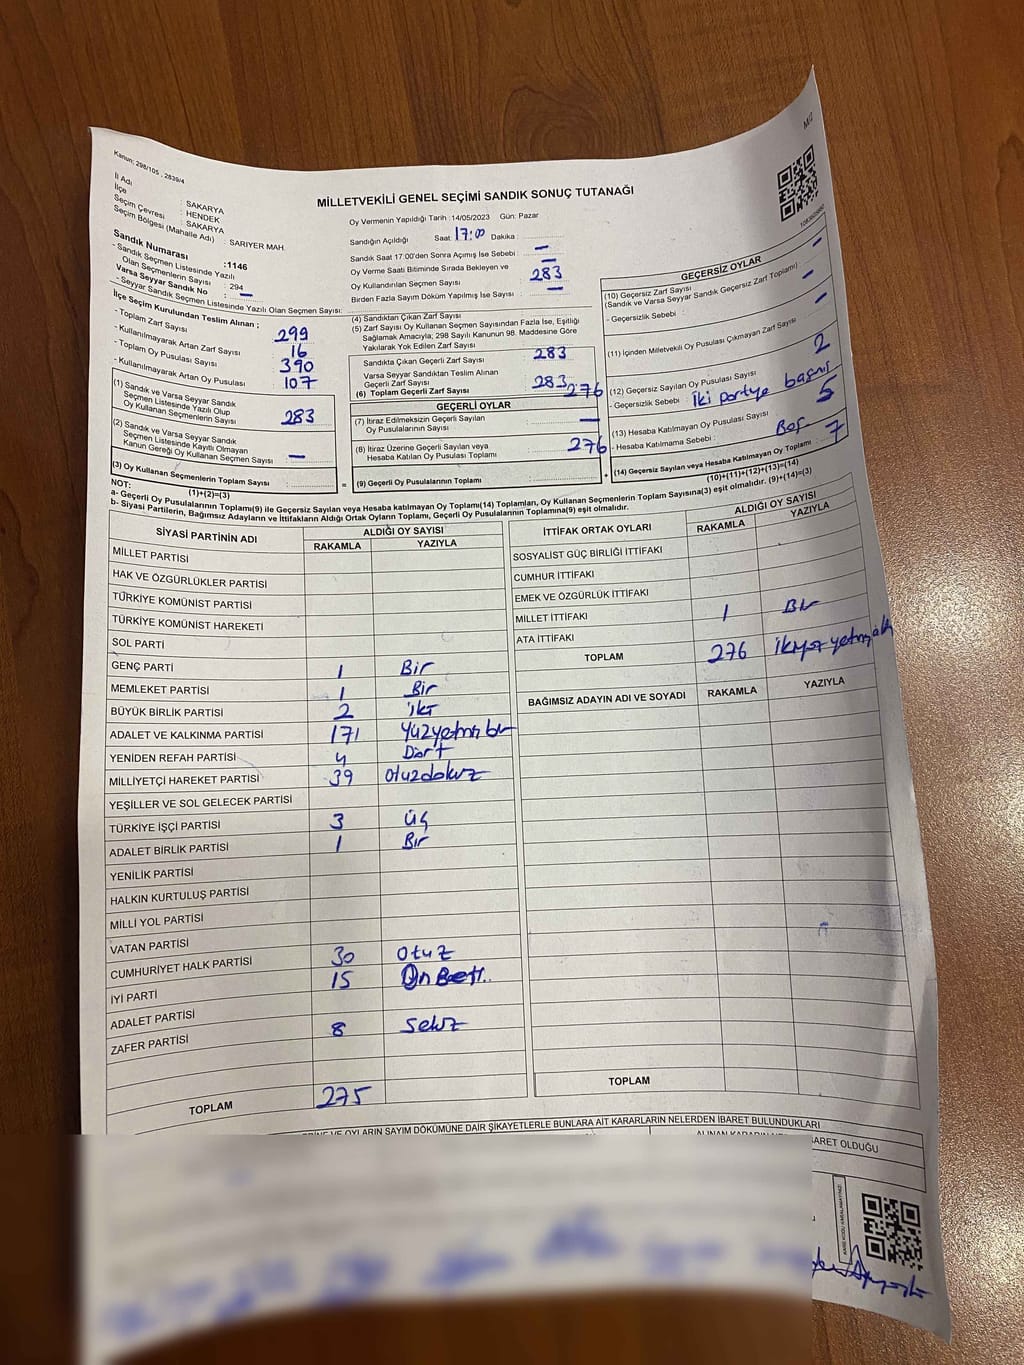 M/2
Kanun: 298/105 , 2839/4
MİLLETVEKİLİ GENEL SEÇİMİ SANDIK SONUÇ TUTANAĞI
İl Adı : SAKARYA
İlçe : HENDEK
Seçim Çevresi : SAKARYA
Seçim Bölgesi (Mahalle Adı) : SARIYER MAH.
Sandık Numarası :1146
- Sandık Seçmen Listesinde Yazılı
Olan Seçmenlerin Sayısı : 294
Varsa Seyyar Sandık No : —
- Seyyar Sandık Seçmen Listesinde Yazılı Olan Seçmen Sayısı:
İlçe Seçim Kurulundan Teslim Alınan ;
- Toplam Zarf Sayısı 299
- Kullanılmayarak Artan Zarf Sayısı 16
- Toplam Oy Pusulası Sayısı 390
- Kullanılmayarak Artan Oy Pusulası 107
(1) Sandık ve Varsa Seyyar Sandık
Seçmen Listesinde Yazılı Olup
Oy Kullanan Seçmenlerin Sayısı 283
(2) Sandık ve Varsa Seyyar Sandık
Seçmen Listesinde Kayıtlı Olmayan
Kanun Gereği Oy Kullanan Seçmen Sayısı —
(3) Oy Kullanan Seçmenlerin Toplam Sayısı
(1)+(2)=(3)
Oy Vermenin Yapıldığı Tarih :14/05/2023 Gün: Pazar
Sandığın Açıldığı Saat 17:00 Dakika :
Sandık Saat 17:00'den Sonra Açımış İse Sebebi : —
Oy Verme Saati Bitiminde Sırada Bekleyen ve —
Oy Kullandırılan Seçmen Sayısı : 283
Birden Fazla Sayım Döküm Yapılmış İse Sayısı : —
(4) Sandıktan Çıkan Zarf Sayısı
(5) Zarf Sayısı Oy Kullanan Seçmen Sayısından Fazla İse, Eşitliği
Sağlamak Amacıyla; 298 Sayılı Kanunun 98. Maddesine Göre
Yakılarak Yok Edilen Zarf Sayısı
Sandıkta Çıkan Geçerli Zarf Sayısı 283
Varsa Seyyar Sandıktan Teslim Alınan
Geçerli Zarf Sayısı
(6) Toplam Geçerli Zarf Sayısı 283
GEÇERLİ OYLAR
(7) İtiraz Edilmeksizin Geçerli Sayılan
Oy Pusulalarının Sayısı 276
(8) İtiraz Üzerine Geçerli Sayılan veya
Hesaba Katılan Oy Pusulası Toplamı —
(9) Geçerli Oy Pusulalarının Toplamı 276
GEÇERSİZ OYLAR
(10) Geçersiz Zarf Sayısı —
(Sandık ve Varsa Seyyar Sandık Geçersiz Zarf Toplamı)
- Geçersizlik Sebebi : —
(11) İçinden Milletvekili Oy Pusulası Çıkmayan Zarf Sayısı —
(12) Geçersiz Sayılan Oy Pusulası Sayısı 2
- Geçersizlik Sebebi : iki partiye basmış
(13) Hesaba Katılmayan Oy Pusulası Sayısı 5
- Hesaba Katılmama Sebebi : Boş
(14) Geçersiz Sayılan veya Hesaba Katılmayan Oy Toplamı : 7
(10)+(11)+(12)+(13)=(14)
NOT:
a- Geçerli Oy Pusulalarının Toplamı(9) ile Geçersiz Sayılan veya Hesaba katılmayan Oy Toplamı(14) Toplamları, Oy Kullanan Seçmenlerin Toplam Sayısına(3) eşit olmalıdır. (9)+(14)=(3)
b- Siyasi Partilerin, Bağımsız Adayların ve İttifakların Aldığı Ortak Oyların Toplamı, Geçerli Oy Pusulalarının Toplamına(9) eşit olmalıdır.
SİYASİ PARTİNİN ADI ALDIĞI OY SAYISI
RAKAMLA YAZIYLA
MİLLET PARTİSİ
HAK VE ÖZGÜRLÜKLER PARTİSİ
TÜRKİYE KOMÜNİST PARTİSİ
TÜRKİYE KOMÜNİST HAREKETİ
SOL PARTİ
GENÇ PARTİ 1 Bir
MEMLEKET PARTİSİ 1 Bir
BÜYÜK BİRLİK PARTİSİ 2 iki
ADALET VE KALKINMA PARTİSİ 171 Yüzyetmiş bir
YENİDEN REFAH PARTİSİ 4 Dört
MİLLİYETÇİ HAREKET PARTİSİ 39 otuzdokuz
YEŞİLLER VE SOL GELECEK PARTİSİ
TÜRKİYE İŞÇİ PARTİSİ 3 üç
ADALET BİRLİK PARTİSİ 1 Bir
YENİLİK PARTİSİ
HALKIN KURTULUŞ PARTİSİ
MİLLİ YOL PARTİSİ
VATAN PARTİSİ
CUMHURİYET HALK PARTİSİ 30 otuz
İYİ PARTİ 15 On Beş
ADALET PARTİSİ
ZAFER PARTİSİ 8 sekiz
TOPLAM 275
İTTİFAK ORTAK OYLARI ALDIĞI OY SAYISI
RAKAMLA YAZIYLA
SOSYALİST GÜÇ BİRLİĞİ İTTİFAKI
CUMHUR İTTİFAKI
EMEK VE ÖZGÜRLÜK İTTİFAKI
MİLLET İTTİFAKI 1 Bir
ATA İTTİFAKI
TOPLAM 276 ikiyüz yetmiş altı
BAĞIMSIZ ADAYIN ADI VE SOYADI RAKAMLA YAZIYLA
TOPLAM
OYLARIN SAYIM DÖKÜMÜNE DAİR ŞİKAYETLERLE BUNLARA AİT KARARLARIN NELERDEN İBARET BULUNDUKLARI